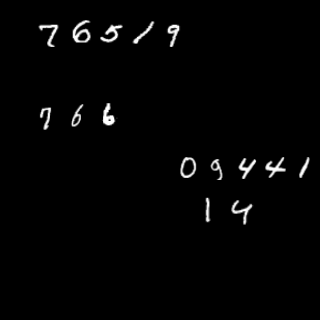 76519
766
09441
14